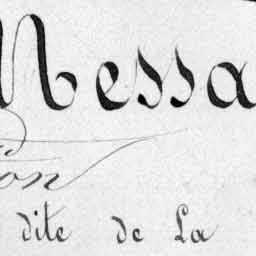 Messa
on
dite de La